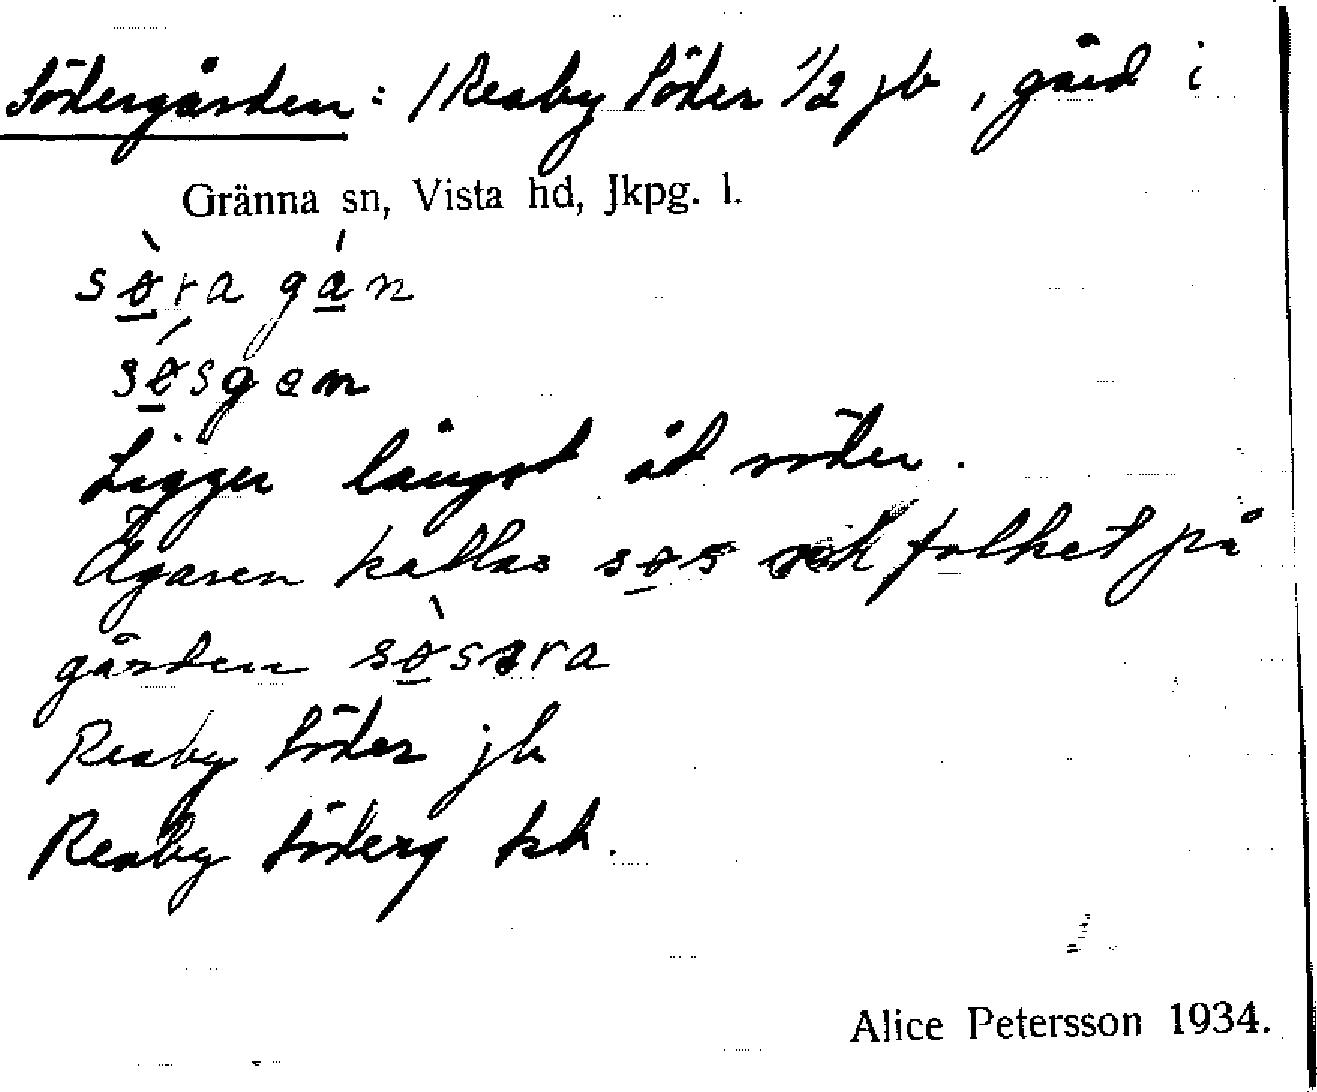 Södergården: /Reaby Söder 1/2 jb, gård i
Gränna sn, Vista hd, Jkpg. l.
sø̀ra gán
sǿsgan
Ligger längst åt söder.
Ägaren kallas søs och folket på
gården sø̀sara
Reaby Söder jb
Reaby Söderg ksk.
Alice Petersson 1934.